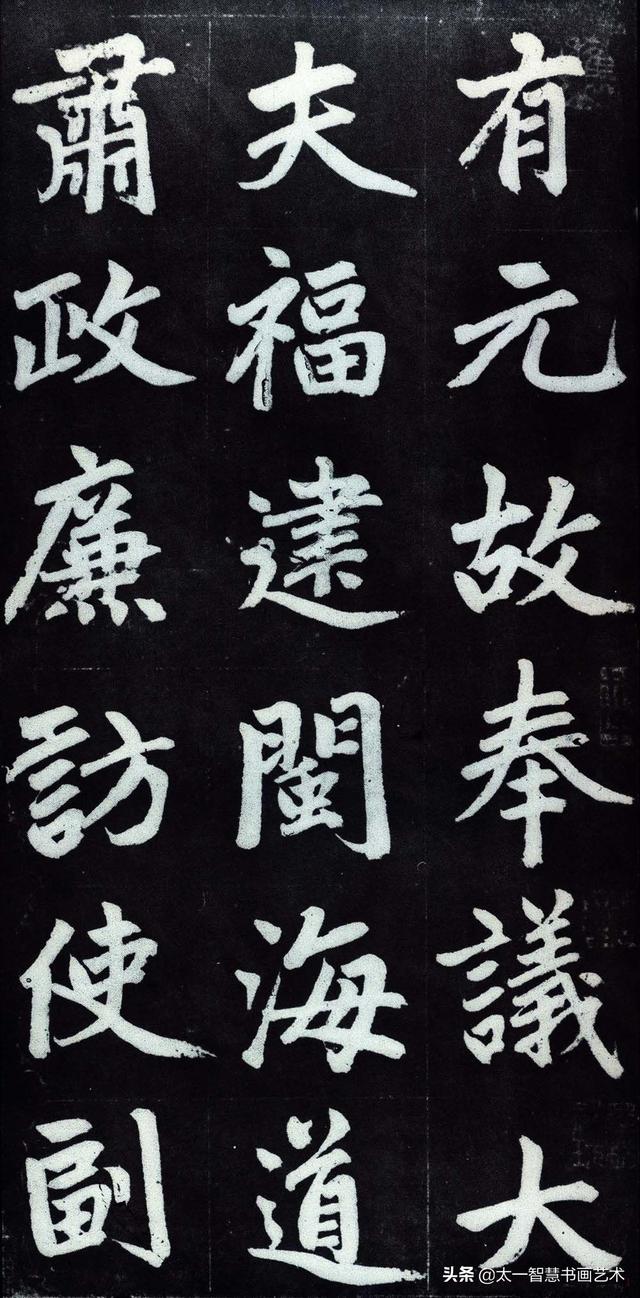 有元故奉議大
夫福建閩海道
肅政廉訪使副
头条 @太一智慧书画艺术